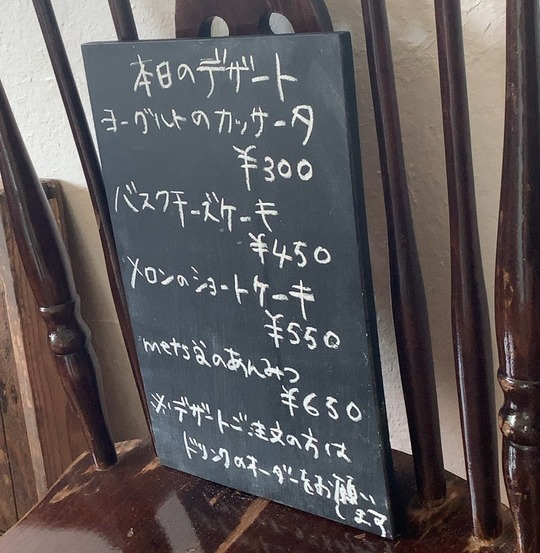 本日のデザート
ヨーグルトのカッサータ
¥300
バスクチーズケーキ
¥450
メロンのショートケーキ
¥550
metsäのあんみつ
¥650
※デザートご注文の方は
ドリンクのオーダーをお願い
します